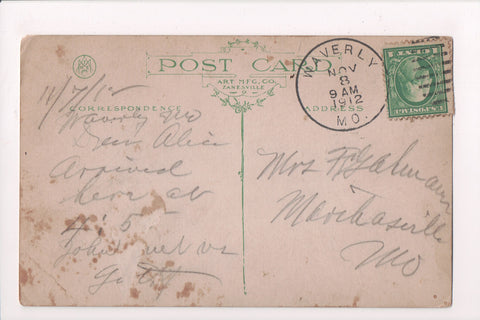 POST CARD
ART MFG. CO.
ZANESVILLE
O
CORRESPONDENCE
ADDRESS
WAVERLY
NOV
8
9 AM
1912
MO.
11/7/12
Waverly Mo
Dear Alice
Arrived
here at
5
John met us
Mrs
Marthasville
Mo